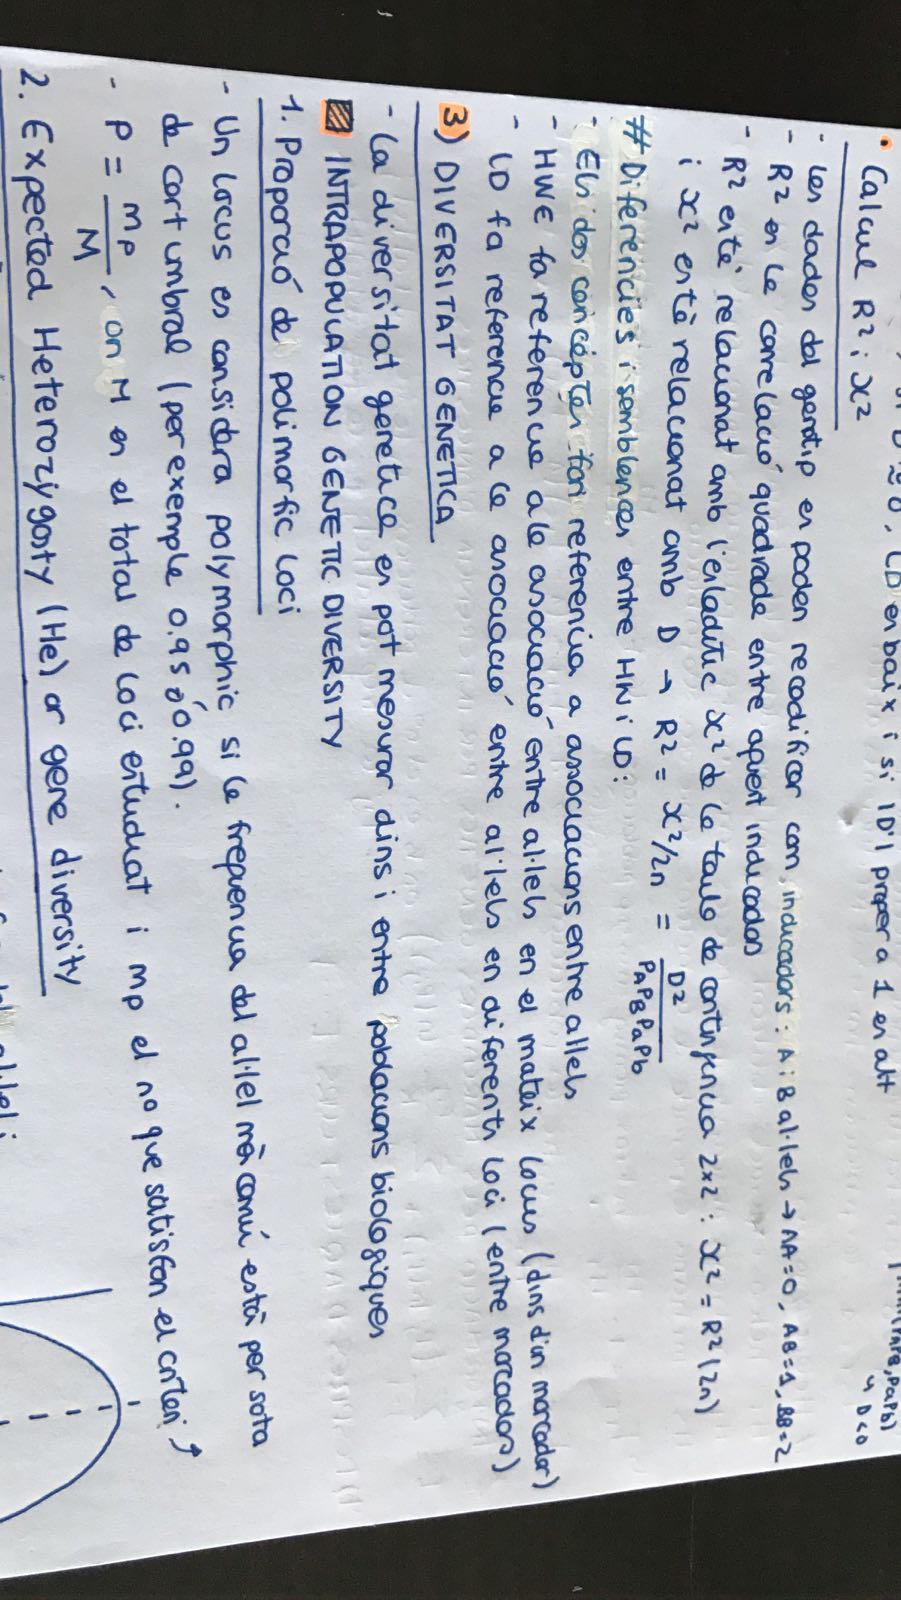 ≈ 0, LD es baix i si |D'| proper a 1 es alt
(PAPB, PaPb)
↳ D<0
• Calcul R² i X²
- Les dades del genotip es poden recodificar com indicadors: A i B al·lels → AA=0, AB=1, BB=2
- R² es la correlació quadrada entre aquest indicados
- R² esté relacionat amb l'estadístic X² de la taula de contingencia 2x2 : X² = R²(2n)
i X² estè relacionat amb D → R² = X²/2n = D² / PAPBPaPb
# Diferencies i semblences entre HW i LD:
- Els dos concéptes fan referencia a associacions entre allels
- HWE fa referencia a la asociació entre al·lels en el mateix locus (dins d'un marcador)
- LD fa referencia a la asociació entre al·lels en diferents loci (entre marcadors)
3) DIVERSITAT GENETICA
- La diversitat genetica es pot mesurar dins i entre poblacions biologiques
INTRAPOPULATION GENETIC DIVERSITY
1. Proporció de polimorfic loci
- Un locus es considera polymorphic si la frequencia del al·lel mès comú està per sota
de cert umbral (per exemple 0.95 ó 0.99).
- P = mp / M, on M es el total de loci estudiat i mp el no que satisfan el criteri ↑
2. Expected Heterozygosty (He) or gene diversity